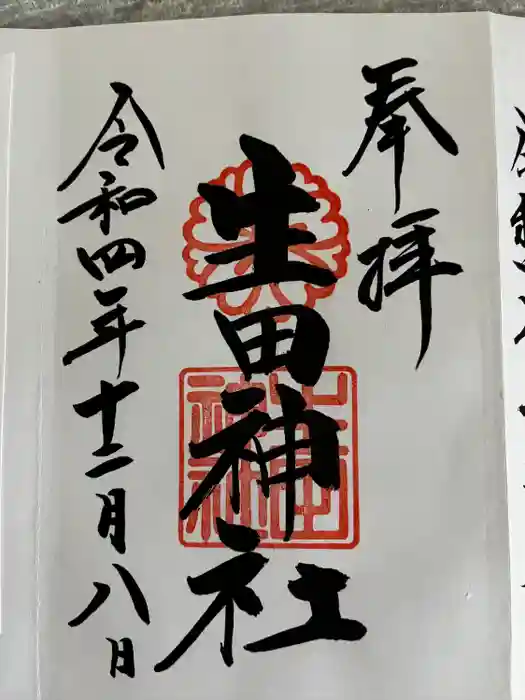 奉拝
生田神社
令和四年十二月八日